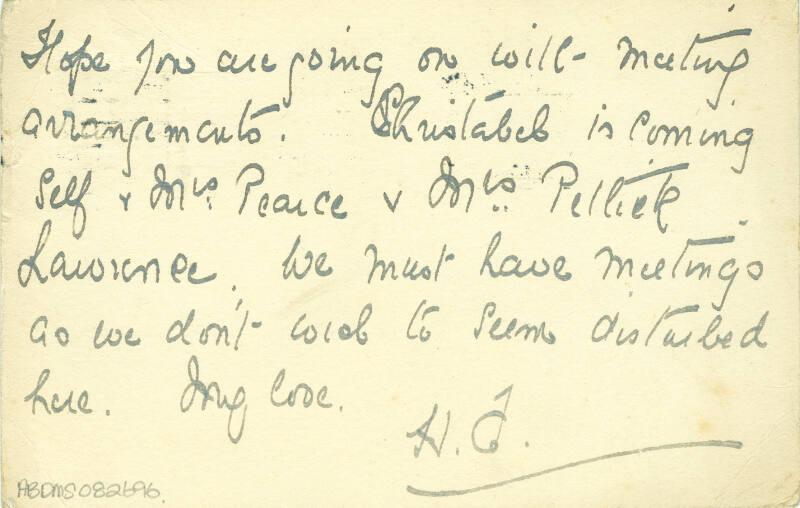 Hope you are going on with meeting
arrangements. Christabel is coming
Self & Mrs. Pearce & Mrs. Pethick
Lawrence. We must have meetings
as we don't wish to seem disturbed
here. My love.
H. F.
ABDMS082696